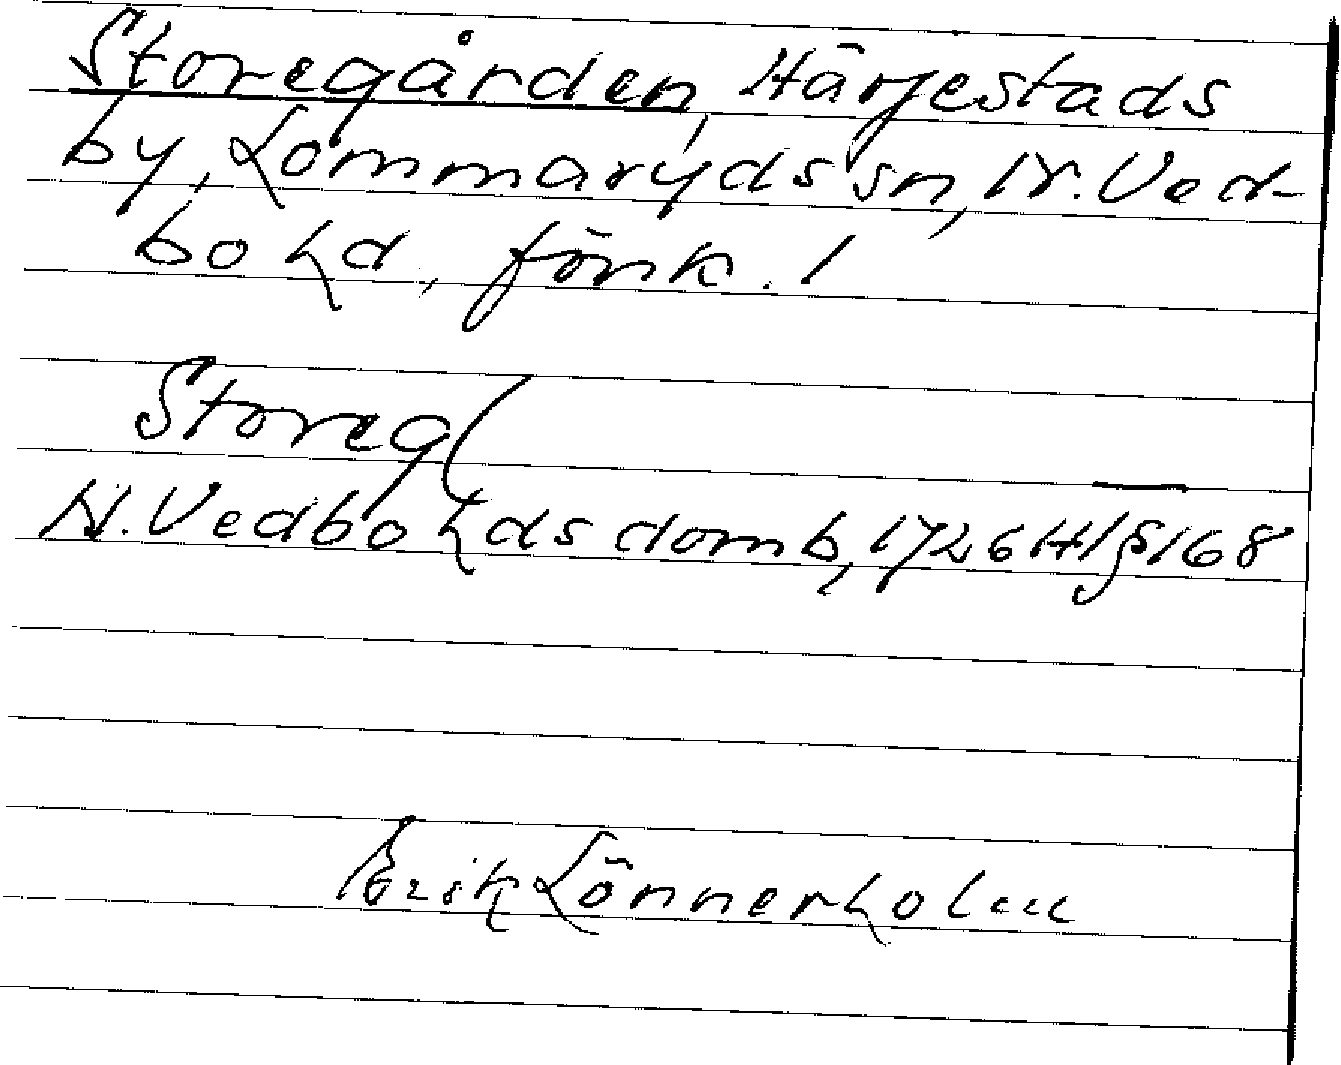 Storegården, Härjestads
by, Lommaryds sn, N. Ved-
bo hd, förk. /
Storeg(
N. Vedbo hds domb, 1726 Ht § 168
Erik Lönnerholm